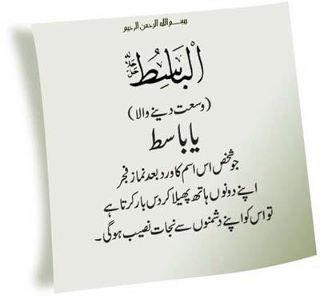 بسم الله الرحمن الرحيم
الْبَاسِطُ جل جلالہ
(وسعت دینے والا)
یا باسط
جو شخص اس اسم کا ورد بعد نماز فجر
اپنے دونوں ہاتھ پھیلا کر دس بار کرتا ہے
تو اس کو اپنے دشمنوں سے نجات نصیب ہوگی۔